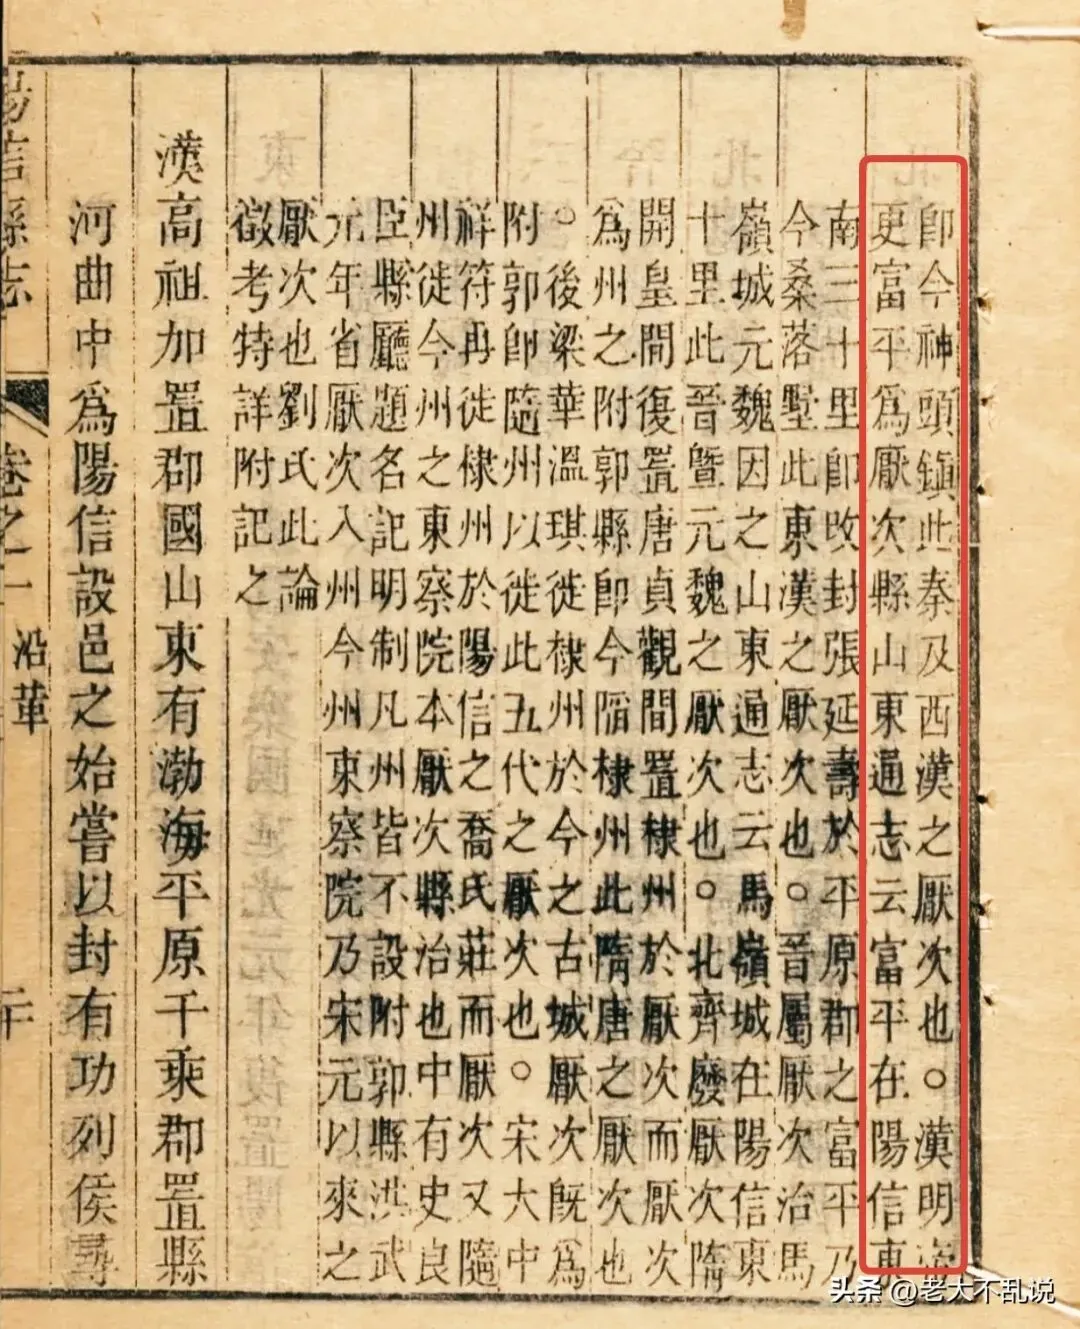 卽今神頭鎮此秦及西漢之厭次也。漢明帝
更富平爲厭次縣山東通志云富平在陽信東
南三十里卽攺封張延壽於平原郡之富平乃
今桑落墅此東漢之厭次也。晉屬厭次治馬
嶺城元魏因之山東通志云馬嶺城在陽信東
十里此晉暨元魏之厭次也。北齊廢厭次隋
開皇間復置唐貞觀間置棣州於厭次而厭次
爲州之附郭縣卽今陷棣州此隋唐之厭次也
。後梁華溫琪徙棣州於今之古城厭次旣爲
附郭卽隨州以徙此五代之厭次也。宋大中
祥符再徙棣州於陽信之喬氏莊而厭次又隨
州徙今州之東察院本厭次縣治也中有史良
臣縣廳題名記明制凡州皆不設附郭縣洪武
元年省厭次入州今州東察院乃宋元以來之
厭次也劉氏此論
徵考特詳附記之
漢高祖加置郡國山東有渤海平原千乘郡置縣
河曲中爲陽信設邑之始嘗以封有功列侯尋
陽信縣志 卷之一 沿革
头条 @老大不乱说